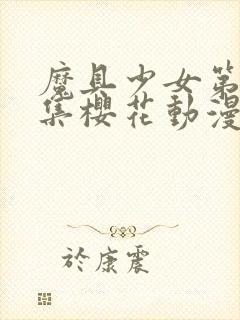 魔具少女第
集櫻花動漫
於康震